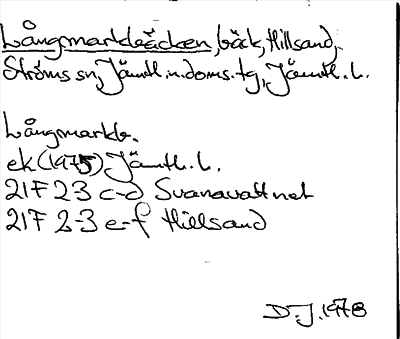 Långmarkbäcken, bäck, Hillsand,
Ströms sn, Jämtl. n. doms. tg, Jämtl. l.
Långmarkb.
ek (1975) Jämtl. l.
21F 2-3 c-d Svanavattnet
21F 2-3 e-f Hillsand
D.J. 1978